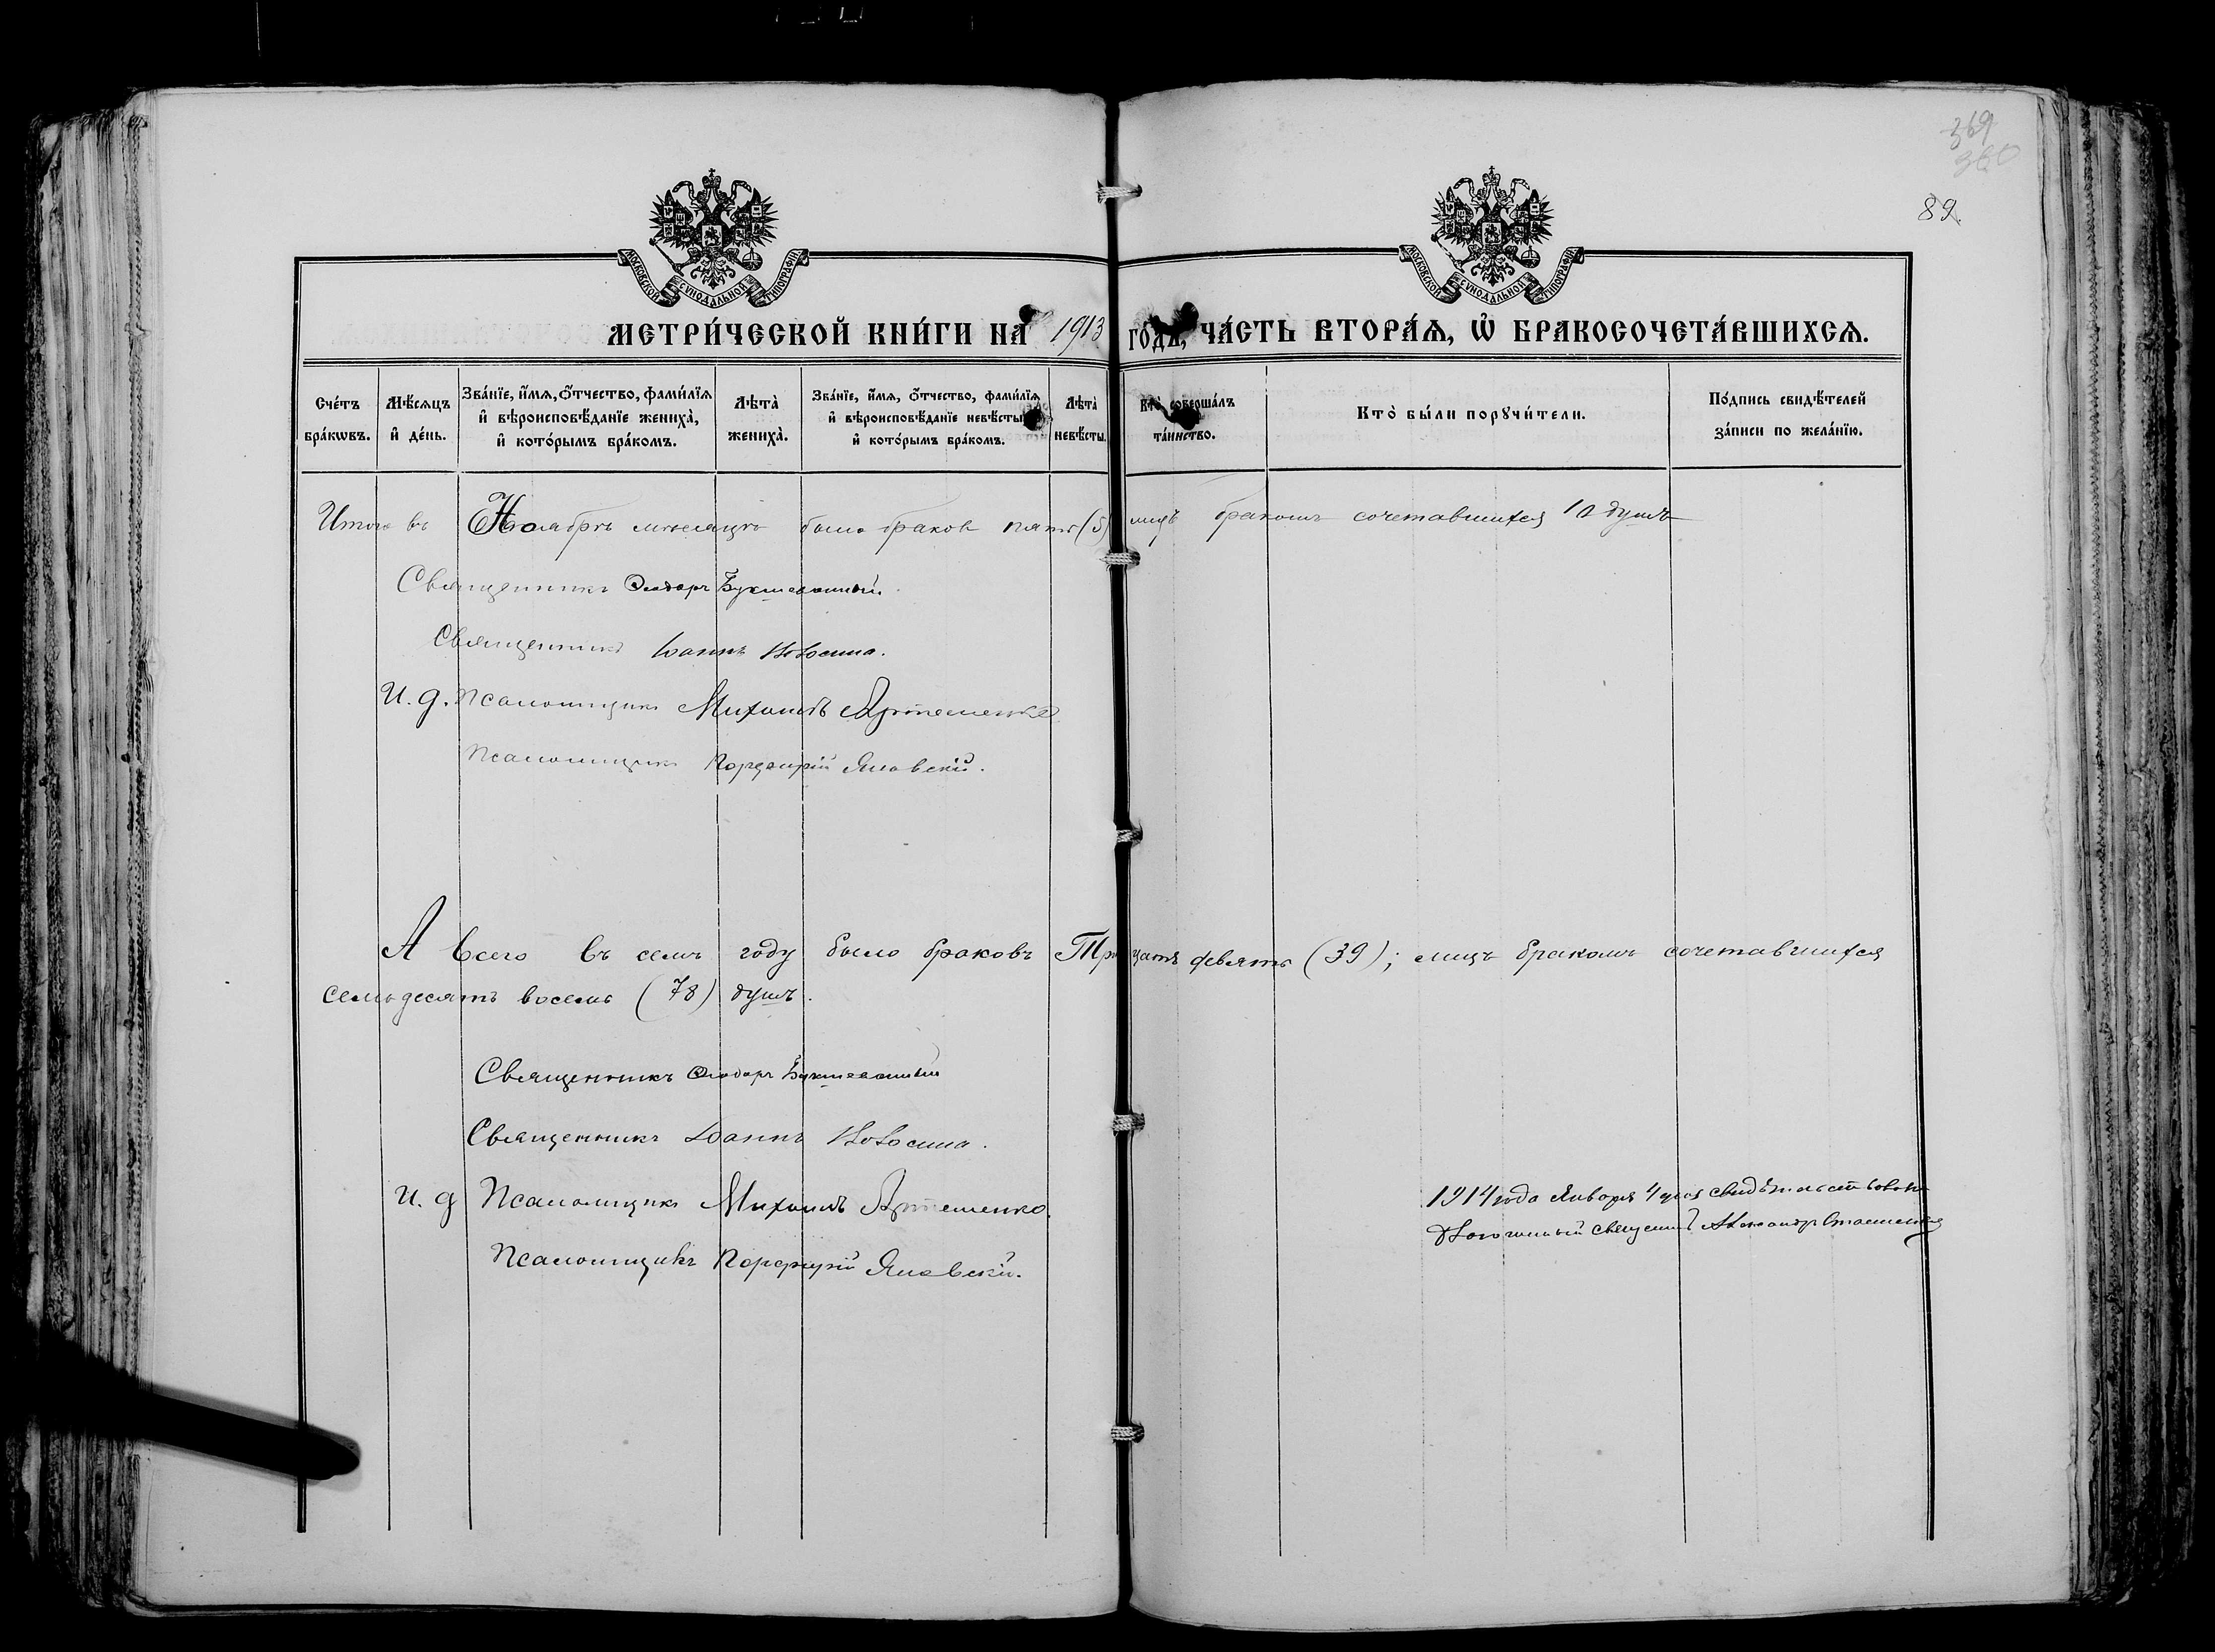 369
360
89.
МОСКОВСКОЙ СѴНОДАЛЬНОЙ ТИПОГРАФІИ
МОСКОВСКОЙ СѴНОДАЛЬНОЙ ТИПОГРАФІИ
МЕТРИ́ЧЕСКОЙ КНИ́ГИ НА̀ 1913 ГО́ДЪ, ЧА́СТЬ ВТОРА́Ѧ, Ѡ҆ БРАКОСОЧЕТА́ВШИХСѦ.
Сче́тъ бра́кѡвъ.
Мѣ́сѧцъ и҆ де́нь.
Зва́нїе, и҆́мѧ, ѻ҆́тчество, фами́лїѧ и҆ вѣроисповѣ́данїе жениха̀, и҆ кото́рымъ бра́комъ.
Лѣта̀ жениха̀.
Зва́нїе, и҆́мѧ, ѻ҆́тчество, фами́лїѧ и҆ вѣроисповѣ́данїе невѣ́сты, и҆ кото́рымъ бра́комъ.
Лѣта̀ невѣ́сты.
Кто̀ соверша́лъ та́инство.
Кто̀ бы́ли порꙋчи́тели.
По́дпись свидѣ́телей за́писи по жела́нїю.
Итого въ Ноябрѣ мѣсяцѣ было браков пять (5) лицъ бракомъ сочетавшихся 10 душъ
Священникъ Ѳеодоръ
Священникъ Іоаннъ Новосила.
И. д. Псаломщика Михаилъ Артеменко
Псаломщикъ Порфирій Яновскій.
А всего въ семъ году было браковъ Тридцать девять (39); лицъ бракомъ сочетавшихся
семьдесятъ восемь (78) душъ.
Священникъ Ѳеодоръ
Священникъ Іоаннъ Новосила.
И. д Псаломщика Михаилъ Артеменко.
Псаломщикъ Порфирій Яновскій.
1914 года Января 4 дня свидѣтельствовалъ
Благочинный священникъ Александръ